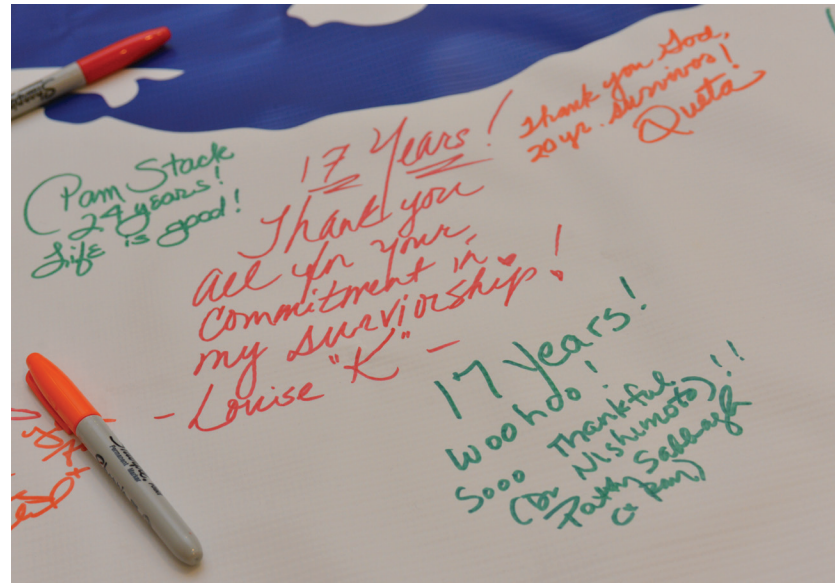 Pam Stack
24 years!
Life is good!
17 Years!
Thank you
all for your
commitment in
my surviorship!
- Louise "K" -
Thank you God,
20 yr. survivor!
Queta
17 years!
woohoo!
Sooo Thankful
(Dr Nishimoto)!!
Patty Sabbagh
Sharpie